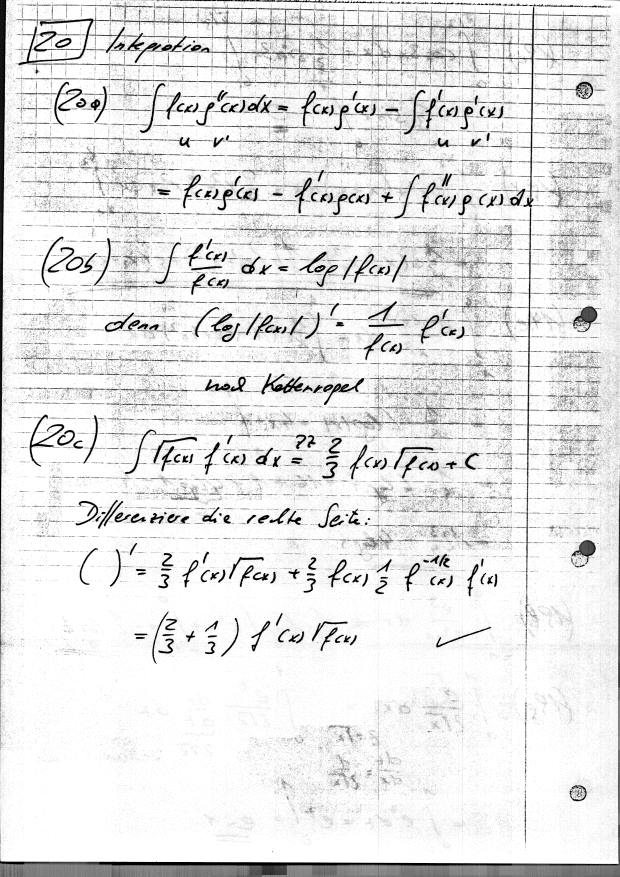 20 Integration
(20a) ∫ f(x) g''(x) dx = f(x) g'(x) − ∫ f'(x) g'(x)
u v' u v'
= f(x) g'(x) − f'(x) g(x) + ∫ f''(x) g(x) dx
(20b) ∫ f'(x)/f(x) dx = log |f(x)|
denn (log |f(x)|)' = 1/f(x) f'(x)
nach Kettenregel
(20c) ∫ √f(x) f'(x) dx =?? 2/3 f(x) √f(x) + C
Differenziere die rechte Seite:
( )' = 2/3 f'(x) √f(x) + 2/3 f(x) 1/2 f^(-1/2)(x) f'(x)
= (2/3 + 1/3) f'(x) √f(x) ✓